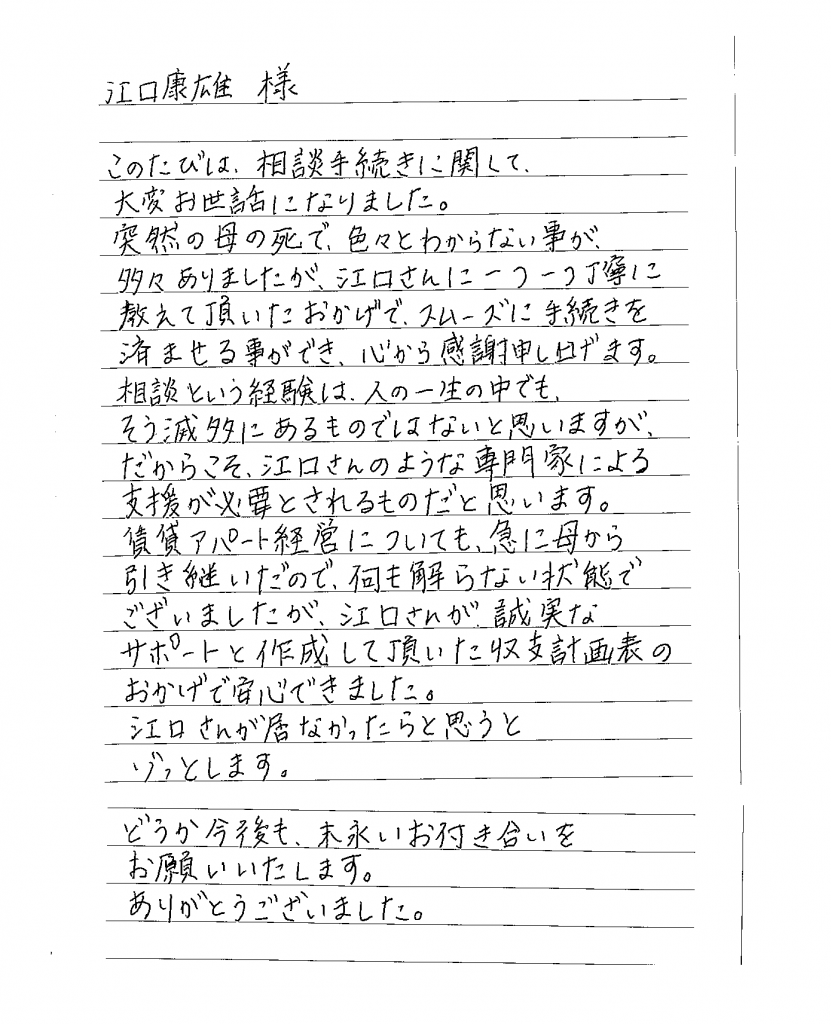 江口康雄 様
このたびは、相談手続きに関して、
大変お世話になりました。
突然の母の死で、色々とわからない事が、
多々ありましたが、江口さんに一つ一つ丁寧に
教えて頂いたおかげで、スムーズに手続きを
済ませる事ができ、心から感謝申し上げます。
相談という経験は、人の一生の中でも、
そう滅多にあるものではないと思いますが、
だからこそ、江口さんのような専門家による
支援が必要とされるものだと思います。
賃貸アパート経営についても、急に母から
引き継いだので、何も解らない状態で
ございましたが、江口さんが、誠実な
サポートと作成して頂いた収支計画表の
おかげで安心できました。
江口さんが居なかったらと思うと
ゾッとします。
どうか今後も、末永いお付き合いを
お願いいたします。
ありがとうございました。